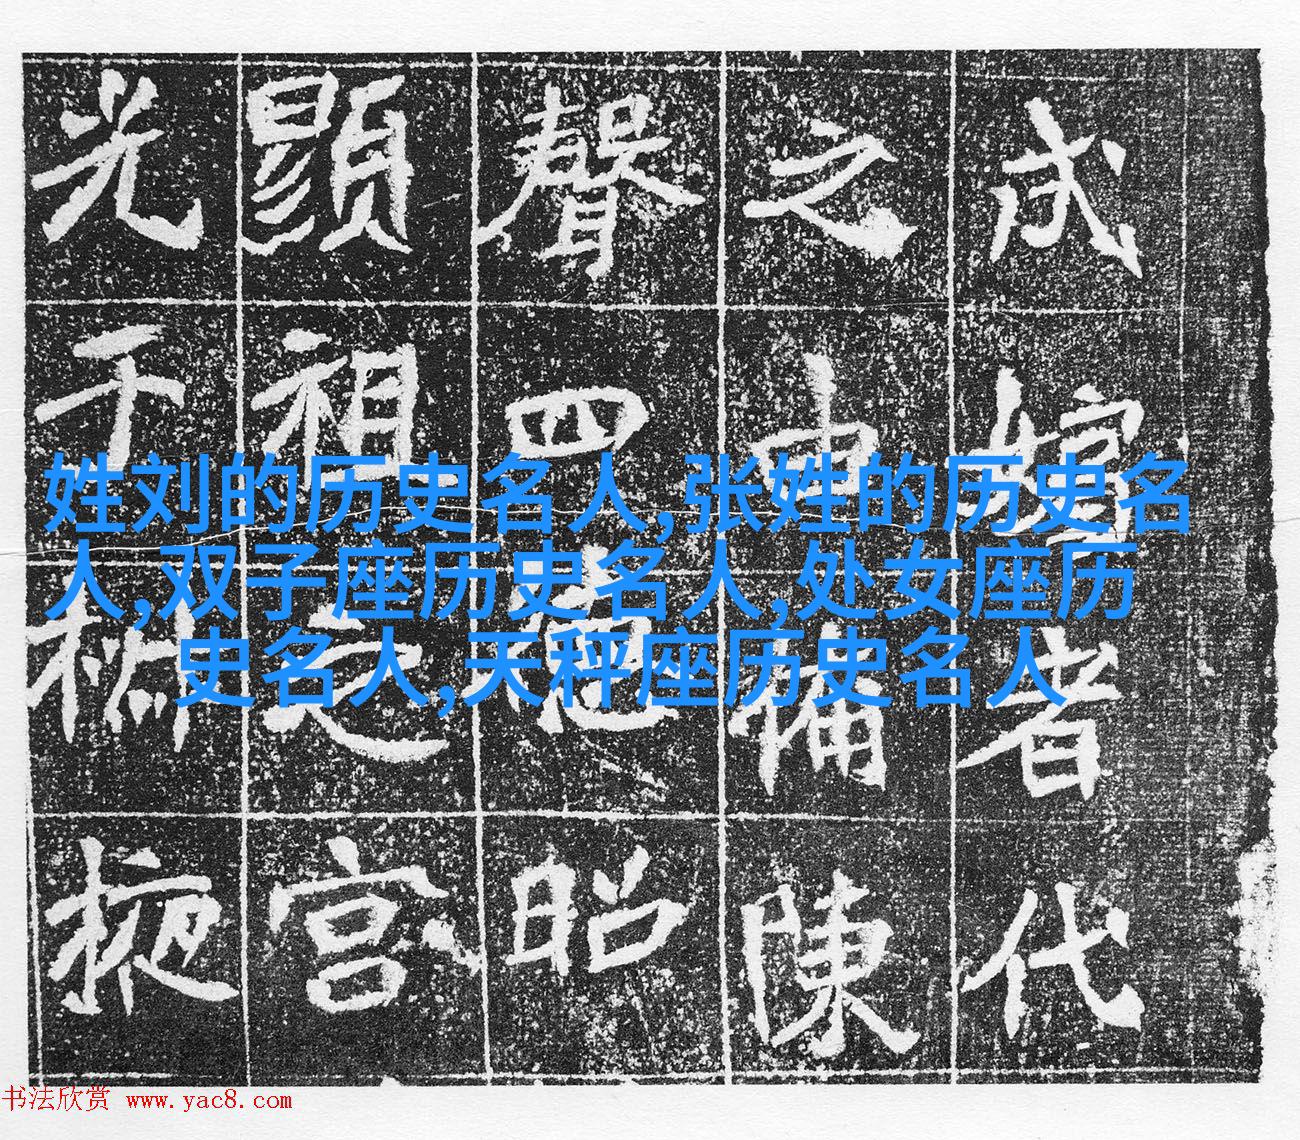 式嬪者代
之申備陳
聲四德昭
顯祖之宮
光于椒掖
姓刘的历史名人,张姓的历史名
人,双子座历史名人,处女座历
史名人,天秤座历史名人
书法欣赏 www.yac8.com